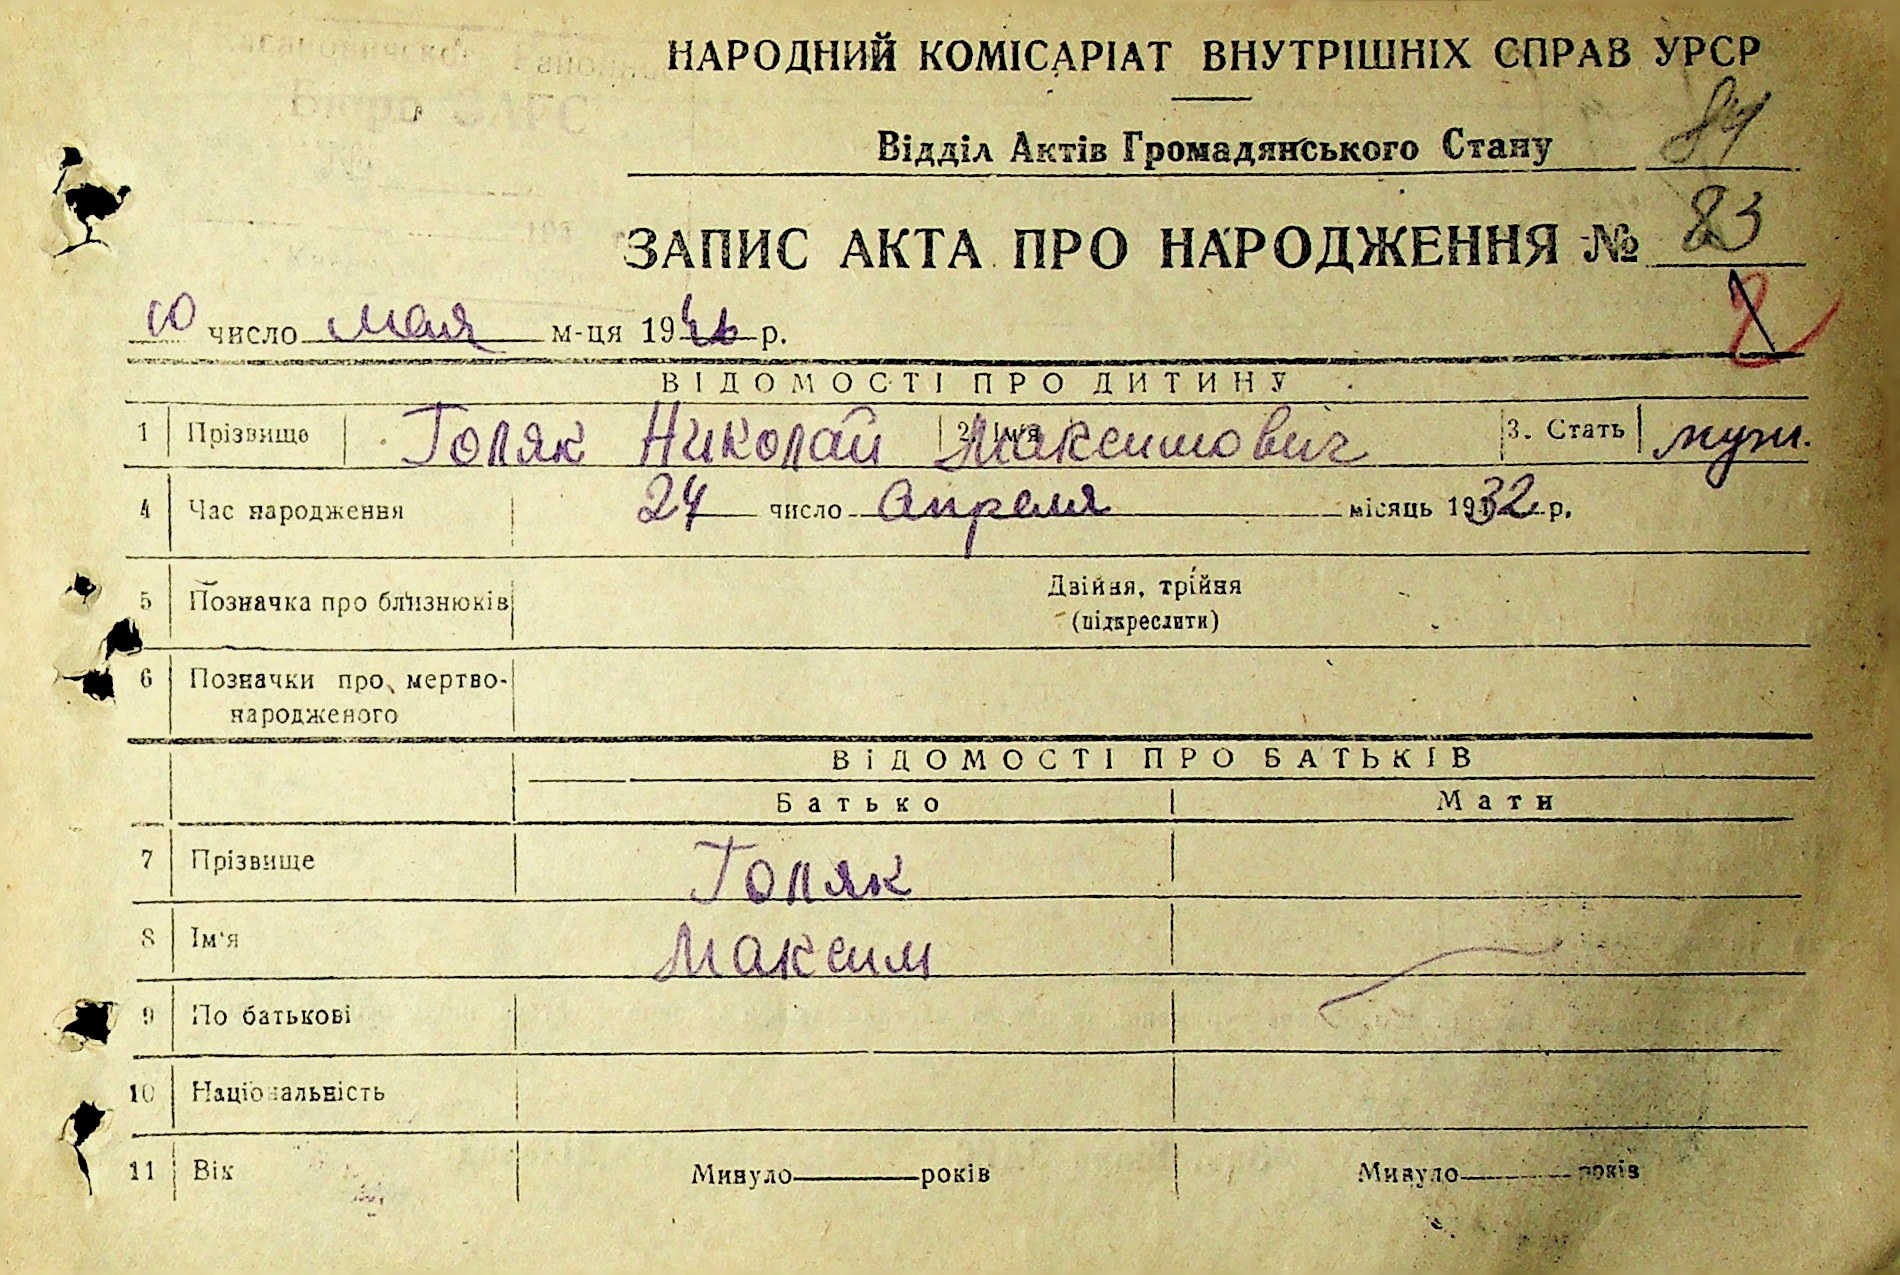 НАРОДНИЙ КОМІСАРІАТ ВНУТРІШНІХ СПРАВ УРСР
Відділ Актів Громадянського Стану 84
ЗАПИС АКТА ПРО НАРОДЖЕННЯ № 83
2
10 число мая м-ця 1946 р.
ВІДОМОСТІ ПРО ДИТИНУ
1 Прізвище Голяк Николай 2. Ім'я Максимович 3. Стать муж.
4 Час народження 24 число Апреля місяць 1932 р.
5 Позначка про близнюків Двійня, трійня
(підкреслити)
6 Позначки про мертво-
народженого
ВІДОМОСТІ ПРО БАТЬКІВ
Батько Мати
7 Прізвище Голяк
8 Ім'я Максим
9 По батькові
10 Національність
11 Вік Минуло років Минуло років